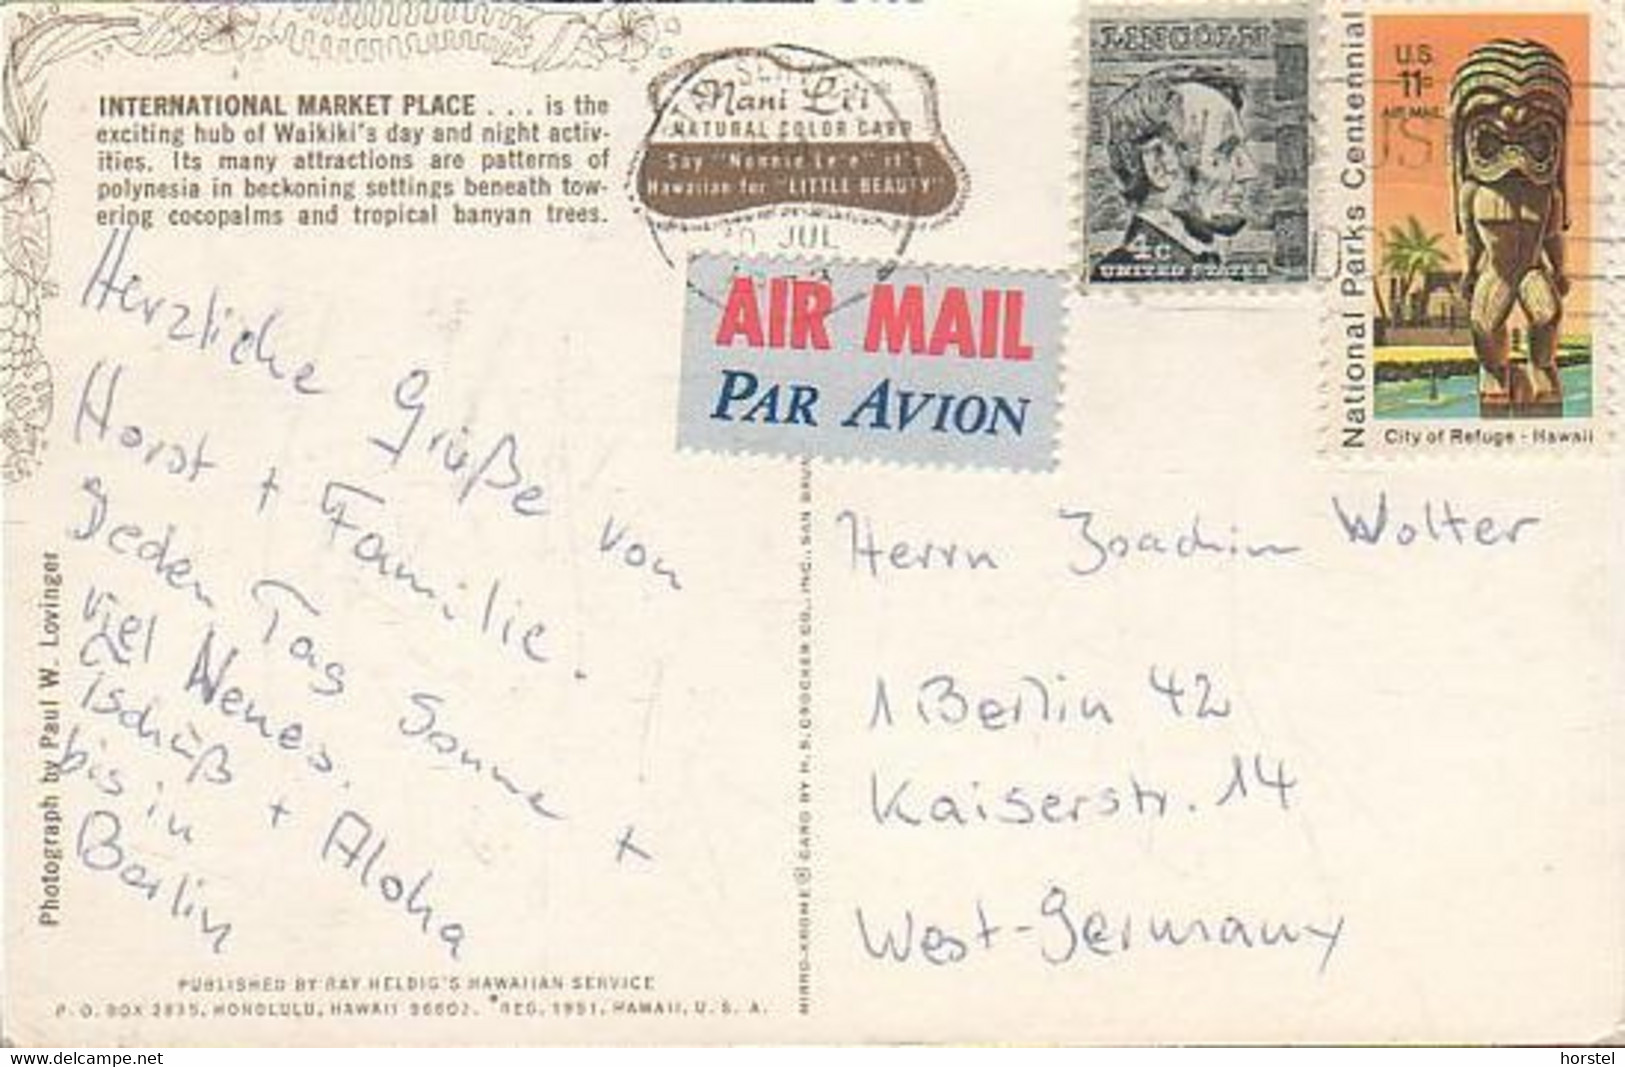 INTERNATIONAL MARKET PLACE . . . is the
exciting hub of Waikiki's day and night activ-
ities. Its many attractions are patterns of
polynesia in beckoning settings beneath tow-
ering cocopalms and tropical banyan trees.
Nani Li'i
NATURAL COLOR CARD
Say "Nannie Le'e" it's
Hawaiian for "LITTLE BEAUTY"
JUL
AIR MAIL
PAR AVION
LINCOLN
4c
UNITED STATES
U.S.
11c
AIR MAIL
National Parks Centennial
City of Refuge - Hawaii
Herzliche Grüße von
Horst + Familie.
Jeden Tag Sonne +
viel Neues.
Tschüß + Aloha
bis in
Berlin
Herrn Joachim Wolter
1 Berlin 42
Kaiserstr. 14
West-Germany
Photograph by Paul W. Lovinger
MIRRO-KROME ® CARD BY H. S. CROCKER CO., INC., SAN BRUN
PUBLISHED BY RAY HELBIG'S HAWAIIAN SERVICE
P. O. BOX 2835, HONOLULU, HAWAII 96802. ®REG. 1951, HAWAII, U. S. A.
www.delcampe.net
horstel